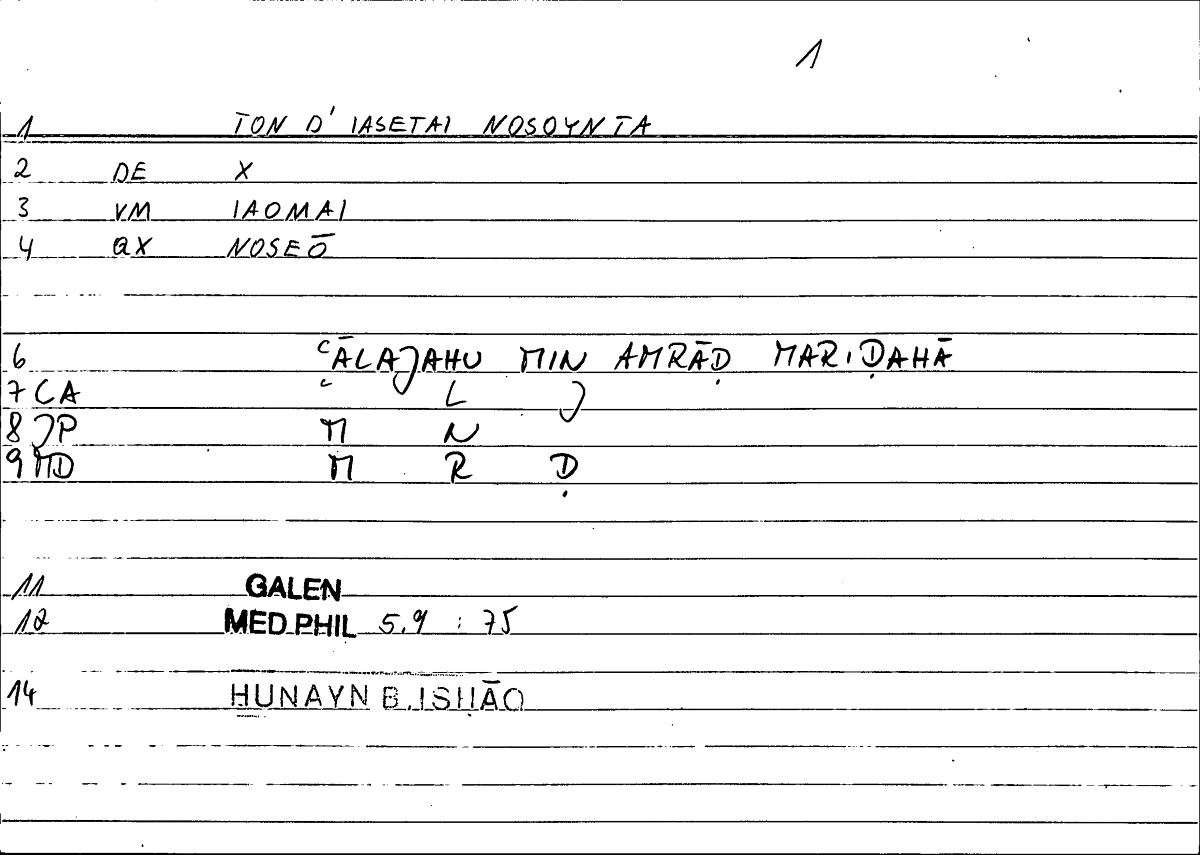 1
1 TON D' IASETAI NOSOYNTA
2 DE X
3 VM IAOMAI
4 QX NOSEŌ
6 ʿĀLAJAHU MIN AMRĀḌ MARIḌAHĀ
7 CA ʿ L J
8 JP M N
9 MD M R Ḍ
11 GALEN
12 MED.PHIL 5.9 : 75
14 ḤUNAYN B.ISḤĀQ